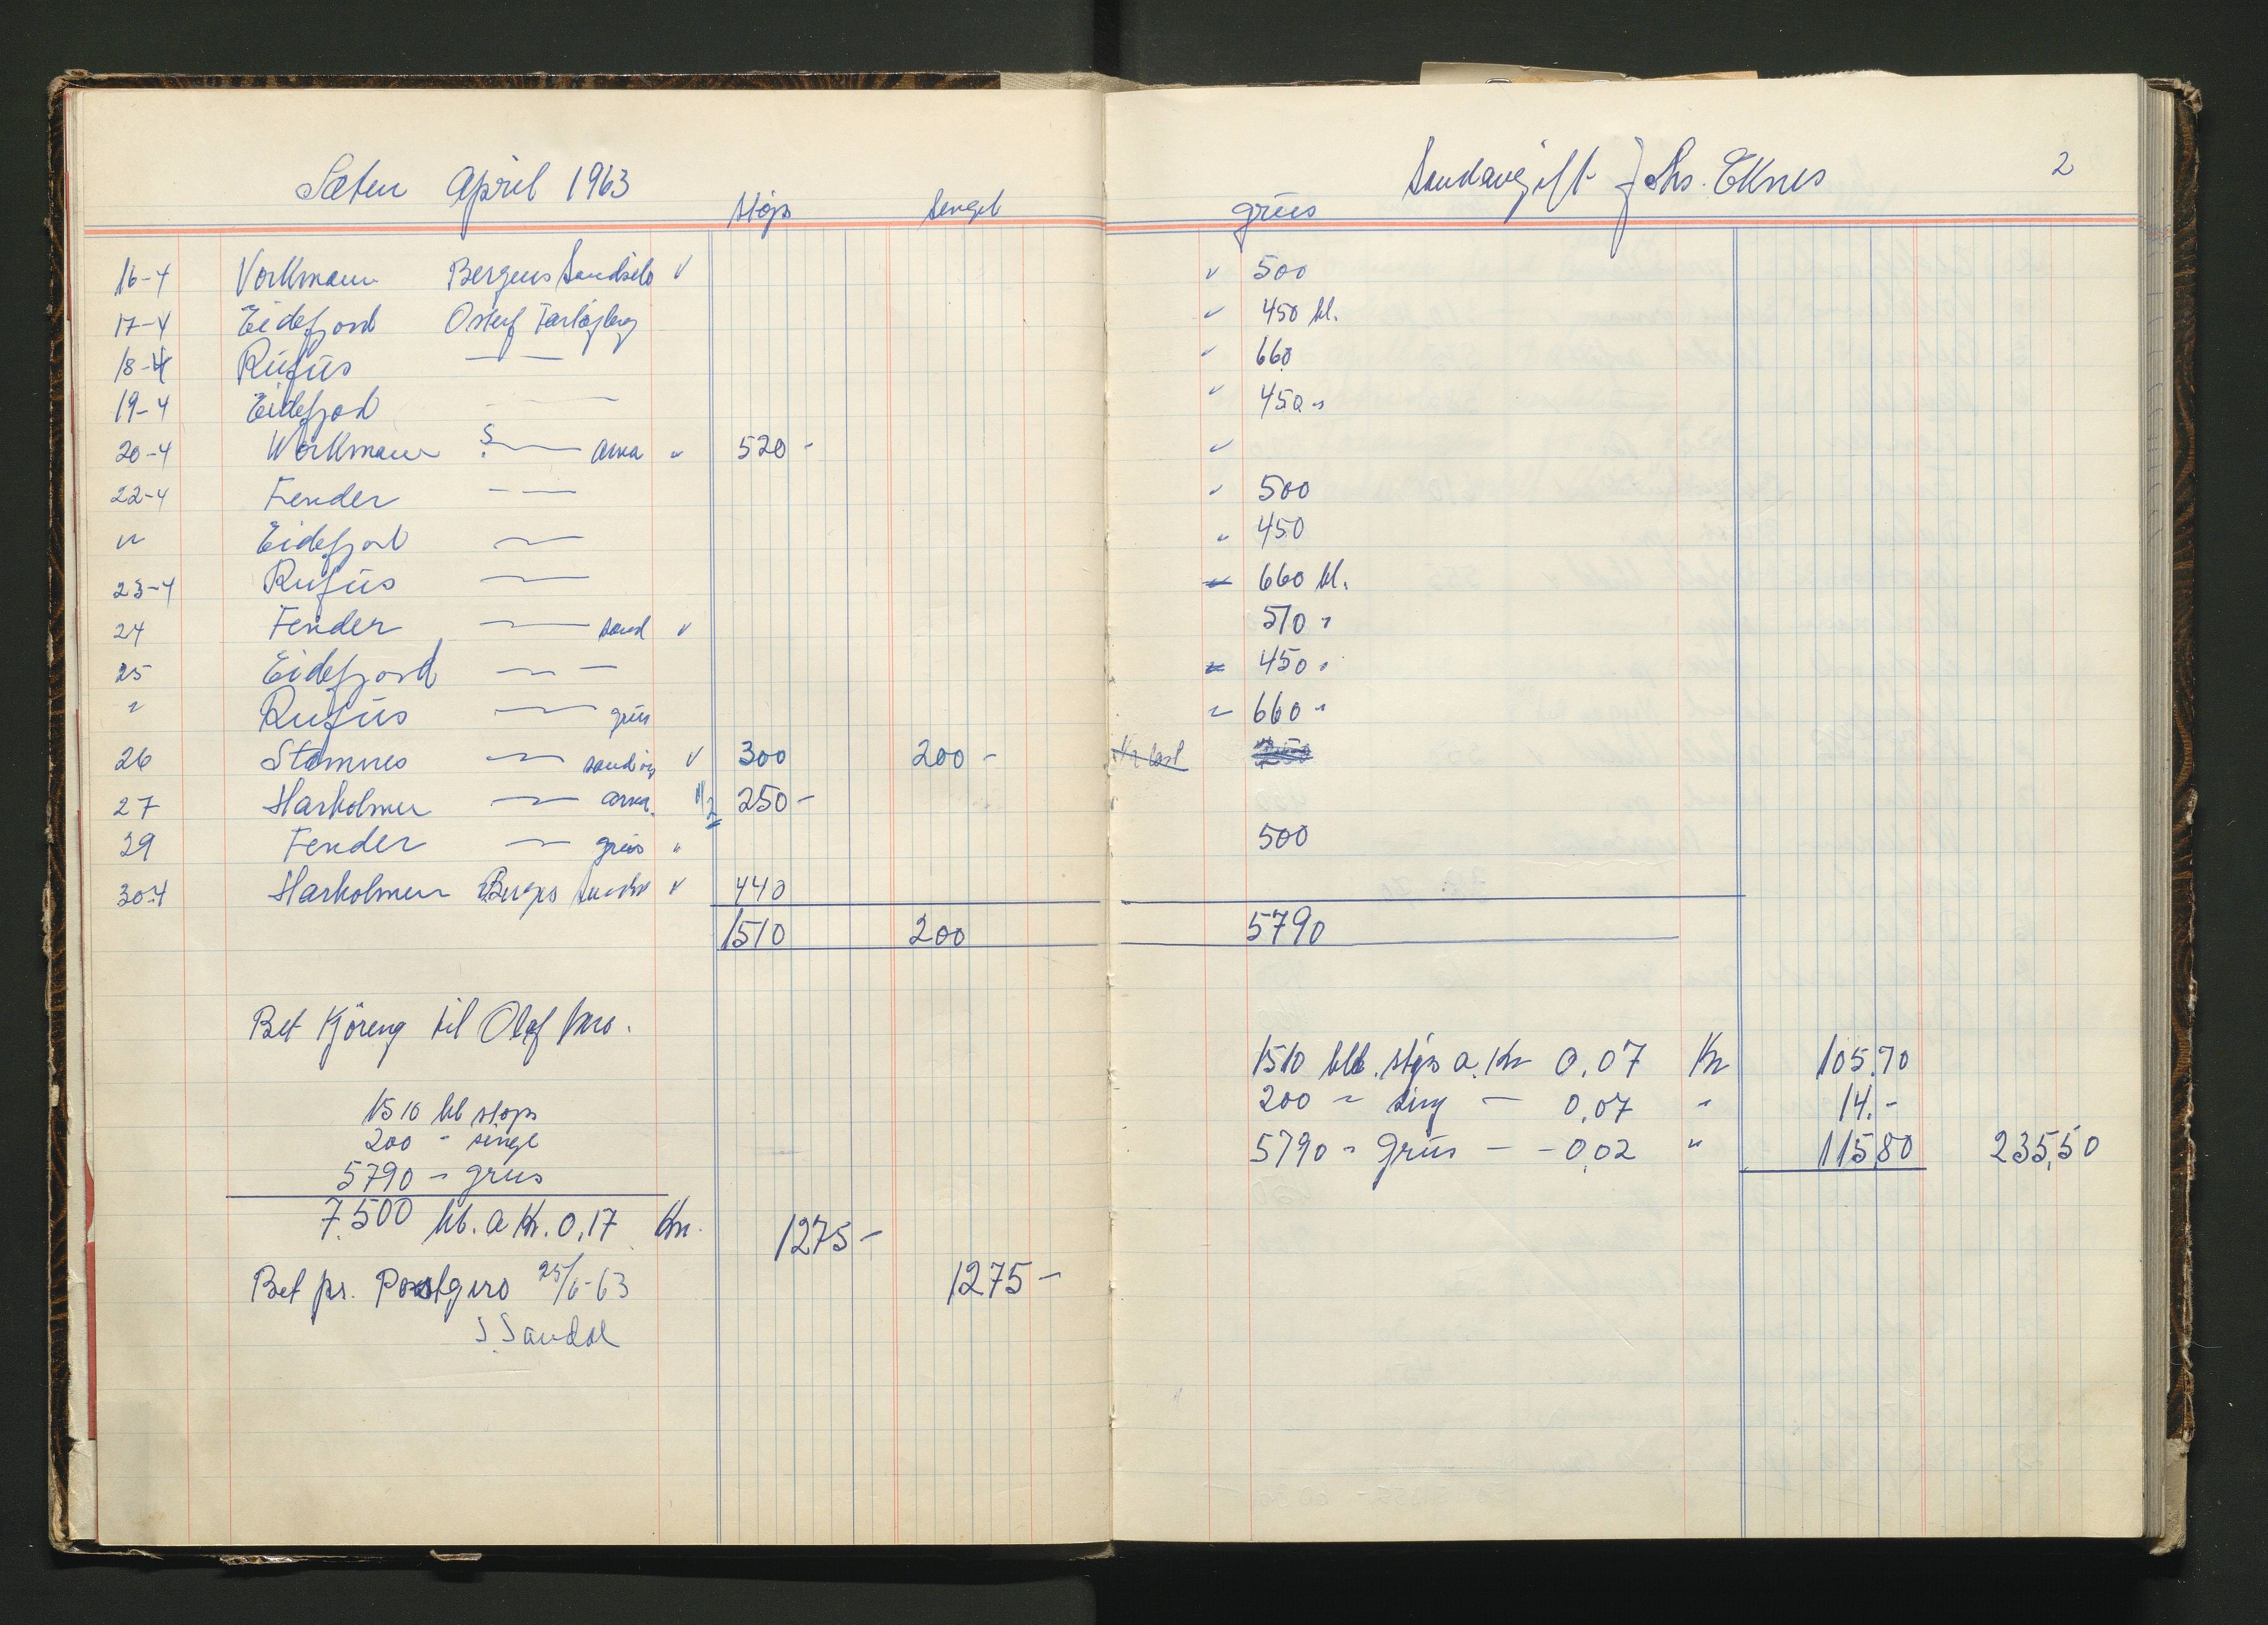 Sæten April 1963
støps
singel
16-4 Vorkmann Bergens Sandsilo v
17-4 Eidefjord Osterf
18-4 Rufus
19-4 Eidefjod
20-4 Workmann 520 -
22-4 Fender
" Eidefjord
23-4 Rufus
24 Fender sand v
25 Eidefjord
" Rufus grus
26 Stamnes v 300 200 -
27 Harholmen 1/2 250 -
29 Fender grus "
30-4 Harholmen Bergs v 440
1510 200
Bet Kjöreng til Olaf
1510 hl støps
200 - singl
5790 - grus
7.500 hl. a Kr. 0,17 Kr. 1275 -
Bet pr. Postgiro 25/6-63 1275 -
S. Sandal
Sandavgift Johs. Eknes 2
grus
v 500
v 450 hl.
v 660
v 450 "
v
v 500
" 450
660 hl.
510 "
450 "
" 660 "
1/2 last
500
5790
1510 hl. støps a. Kr 0,07 Kr 105,70
200 " sing - 0,07 " 14.-
5790 " Grus - - 0,02 " 115,80 235,50